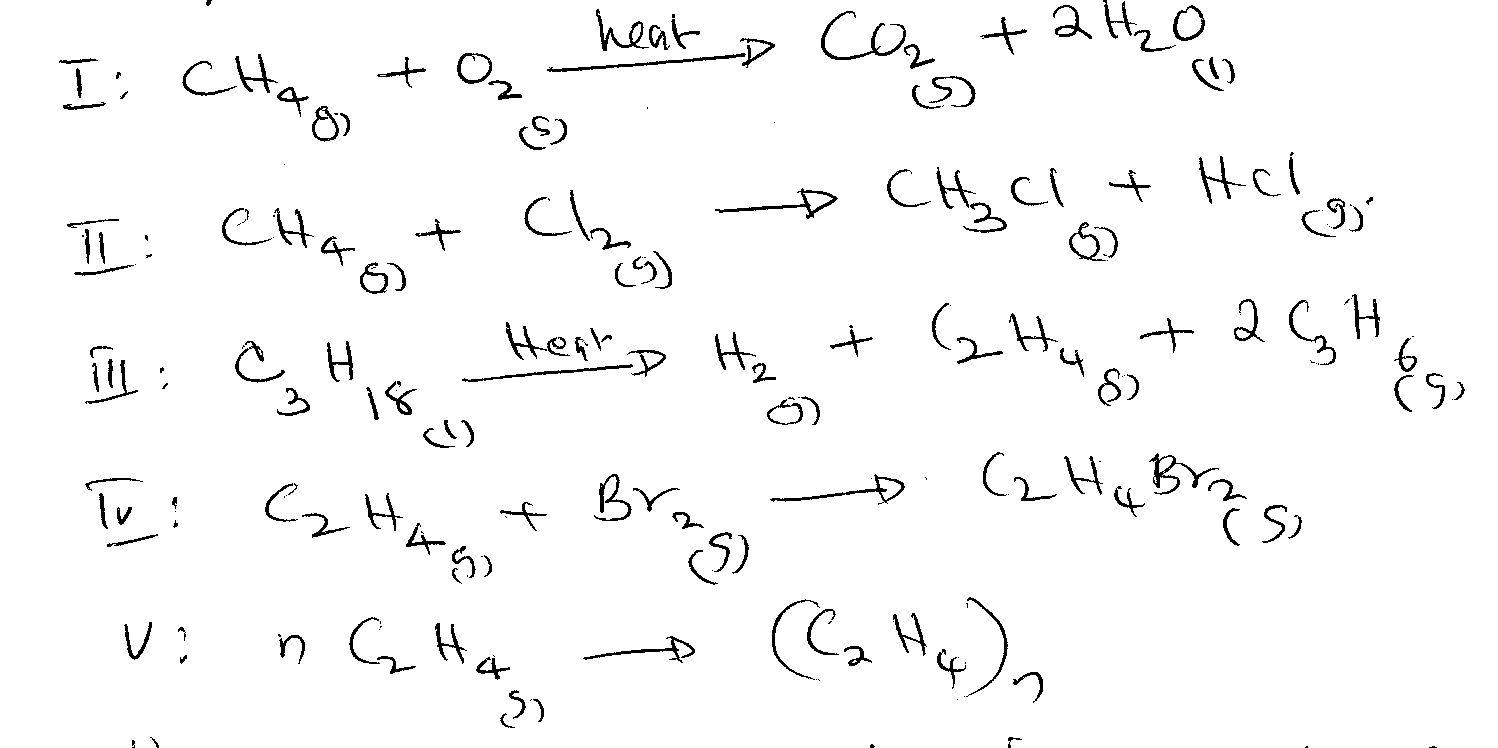 I: CH₄(g) + O₂(g) heat → CO₂(g) + 2H₂O(l)
II: CH₄(g) + Cl₂(g) → CH₃Cl(g) + HCl(g)
III: C₃H₁₈(l) Heat → H₂(g) + C₂H₄(g) + 2C₃H₆(g)
IV: C₂H₄(g) + Br₂(g) → C₂H₄Br₂(g)
V: nC₂H₄(g) → (C₂H₄)ₙ